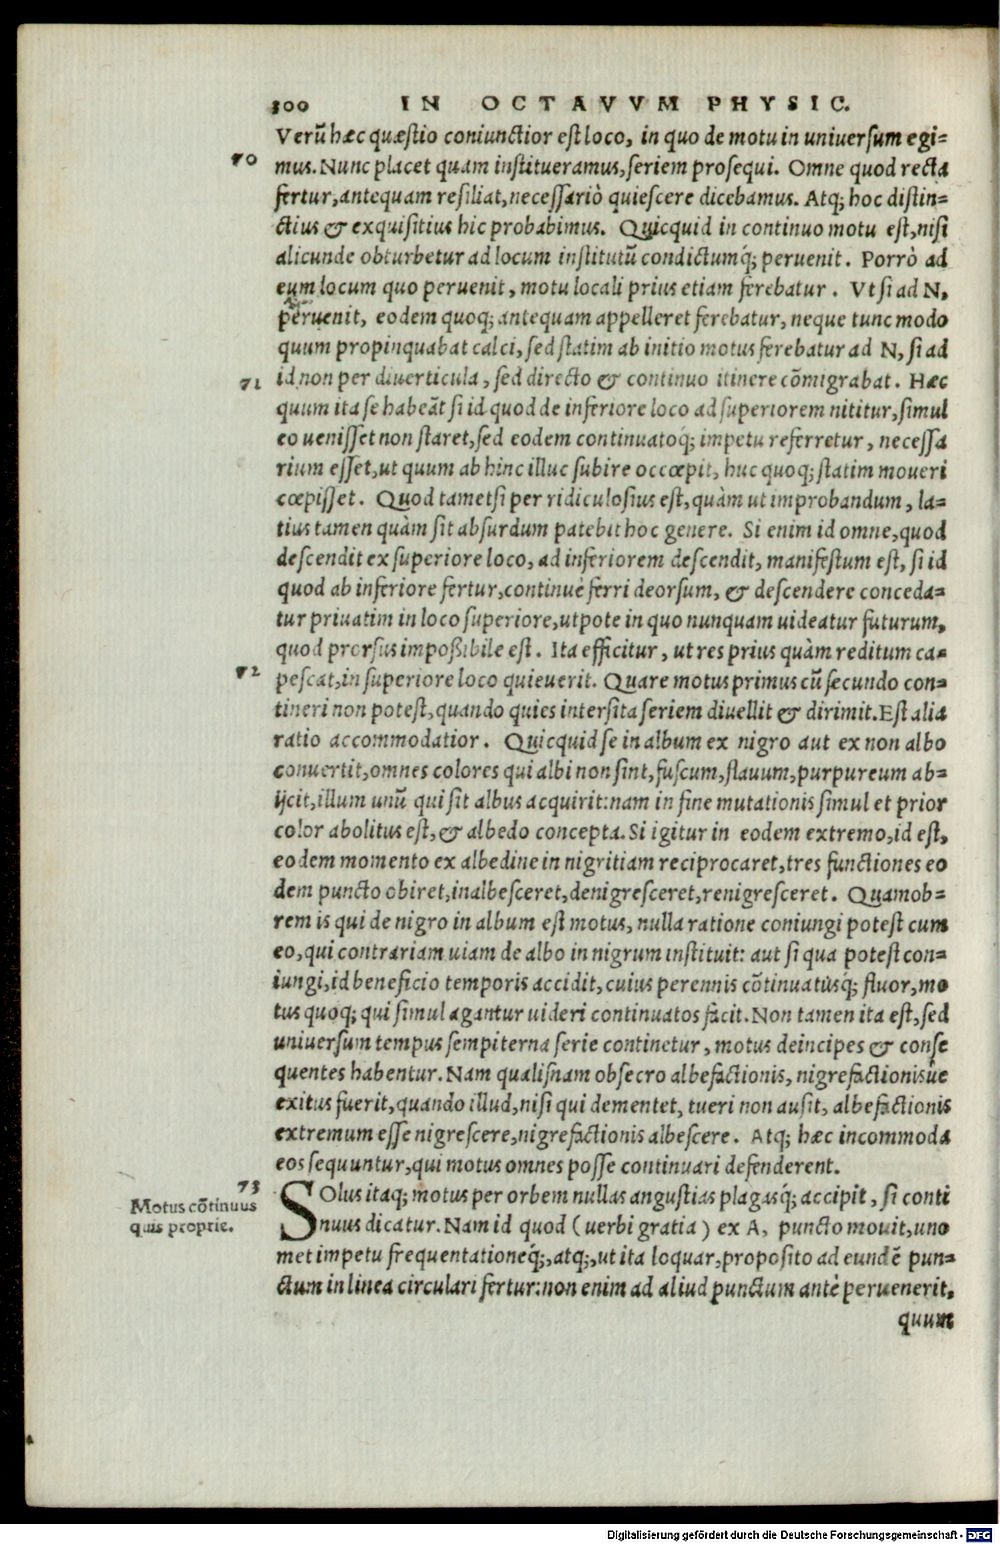 300 IN OCTAVVM PHYSIC.
Verū hæc quæstio coniunctior est loco, in quo de motu in uniuersum egi=
70 mus. Nunc placet quam institueramus, seriem prosequi. Omne quod recta
fertur, antequam resiliat, necessariò quiescere dicebamus. Atq; hoc distin=
ctius & exquisitius hic probabimus. Quicquid in continuo motu est, nisi
alicunde obturbetur ad locum institutū condictumq́; peruenit. Porrò ad
eum locum quo peruenit, motu locali prius etiam ferebatur. Vt si ad N,
peruenit, eodem quoq; antequam appelleret ferebatur, neque tunc modo
quum propinquabat calci, sed statim ab initio motus ferebatur ad N, si ad
71 id non per diuerticula, sed directo & continuo itinere cōmigrabat. Hæc
quum ita se habeāt si id quod de inferiore loco ad superiorem nititur, simul
eo uenisset non staret, sed eodem continuatoq́; impetu referretur, necessa
rium esset, ut quum ab hinc illuc subire occœpit, huc quoq; statim moueri
cœpisset. Quod tametsi per ridiculosius est, quàm ut improbandum, la=
tius tamen quàm sit absurdum patebit hoc genere. Si enim id omne, quod
descendit ex superiore loco, ad inferiorem descendit, manifestum est, si id
quod ab inferiore fertur, continuè ferri deorsum, & descendere conceda=
tur priuatim in loco superiore, utpote in quo nunquam uideatur futurum,
quod prorsus impoßibile est. Ita efficitur, ut res prius quàm reditum ca=
72 pescat, in superiore loco quieuerit. Quare motus primus cū secundo con=
tineri non potest, quando quies intersita seriem diuellit & dirimit. Est alia
ratio accommodatior. Quicquid se in album ex nigro aut ex non albo
conuertit, omnes colores qui albi non sint, fuscum, flauum, purpureum ab=
ijcit, illum unū qui sit albus acquirit: nam in fine mutationis simul et prior
color abolitus est, & albedo concepta. Si igitur in eodem extremo, id est,
eodem momento ex albedine in nigritiam reciprocaret, tres functiones eo
dem puncto obiret, inalbesceret, denigresceret, renigresceret. Quamob=
rem is qui de nigro in album est motus, nulla ratione coniungi potest cum
eo, qui contrariam uiam de albo in nigrum instituit: aut si qua potest con=
iungi, id beneficio temporis accidit, cuius perennis cōtinuatusq́; fluor, mo
tus quoq; qui simul agantur uideri continuatos facit. Non tamen ita est, sed
uniuersum tempus sempiterna serie continetur, motus deincipes & conse
quentes habentur. Nam qualisnam obsecro albefactionis, nigrefactionisúe
exitus fuerit, quando illud, nisi qui dementet, tueri non ausit, albefactionis
extremum esse nigrescere, nigrefactionis albescere. Atq; hæc incommoda
eos sequuntur, qui motus omnes posse continuari defenderent.
73
Motus cōtinuus
quis proprie.
SOlus itaq; motus per orbem nullas angustias plagasq́; accipit, si conti
nuus dicatur. Nam id quod (uerbi gratia) ex A, puncto mouit, uno
met impetu frequentationeq́;, atq;, ut ita loquar, proposito ad eundē pun=
ctum in linea circulari fertur: non enim ad aliud punctum antè peruenerit,
quum
Digitalisierung gefördert durch die Deutsche Forschungsgemeinschaft - DFG